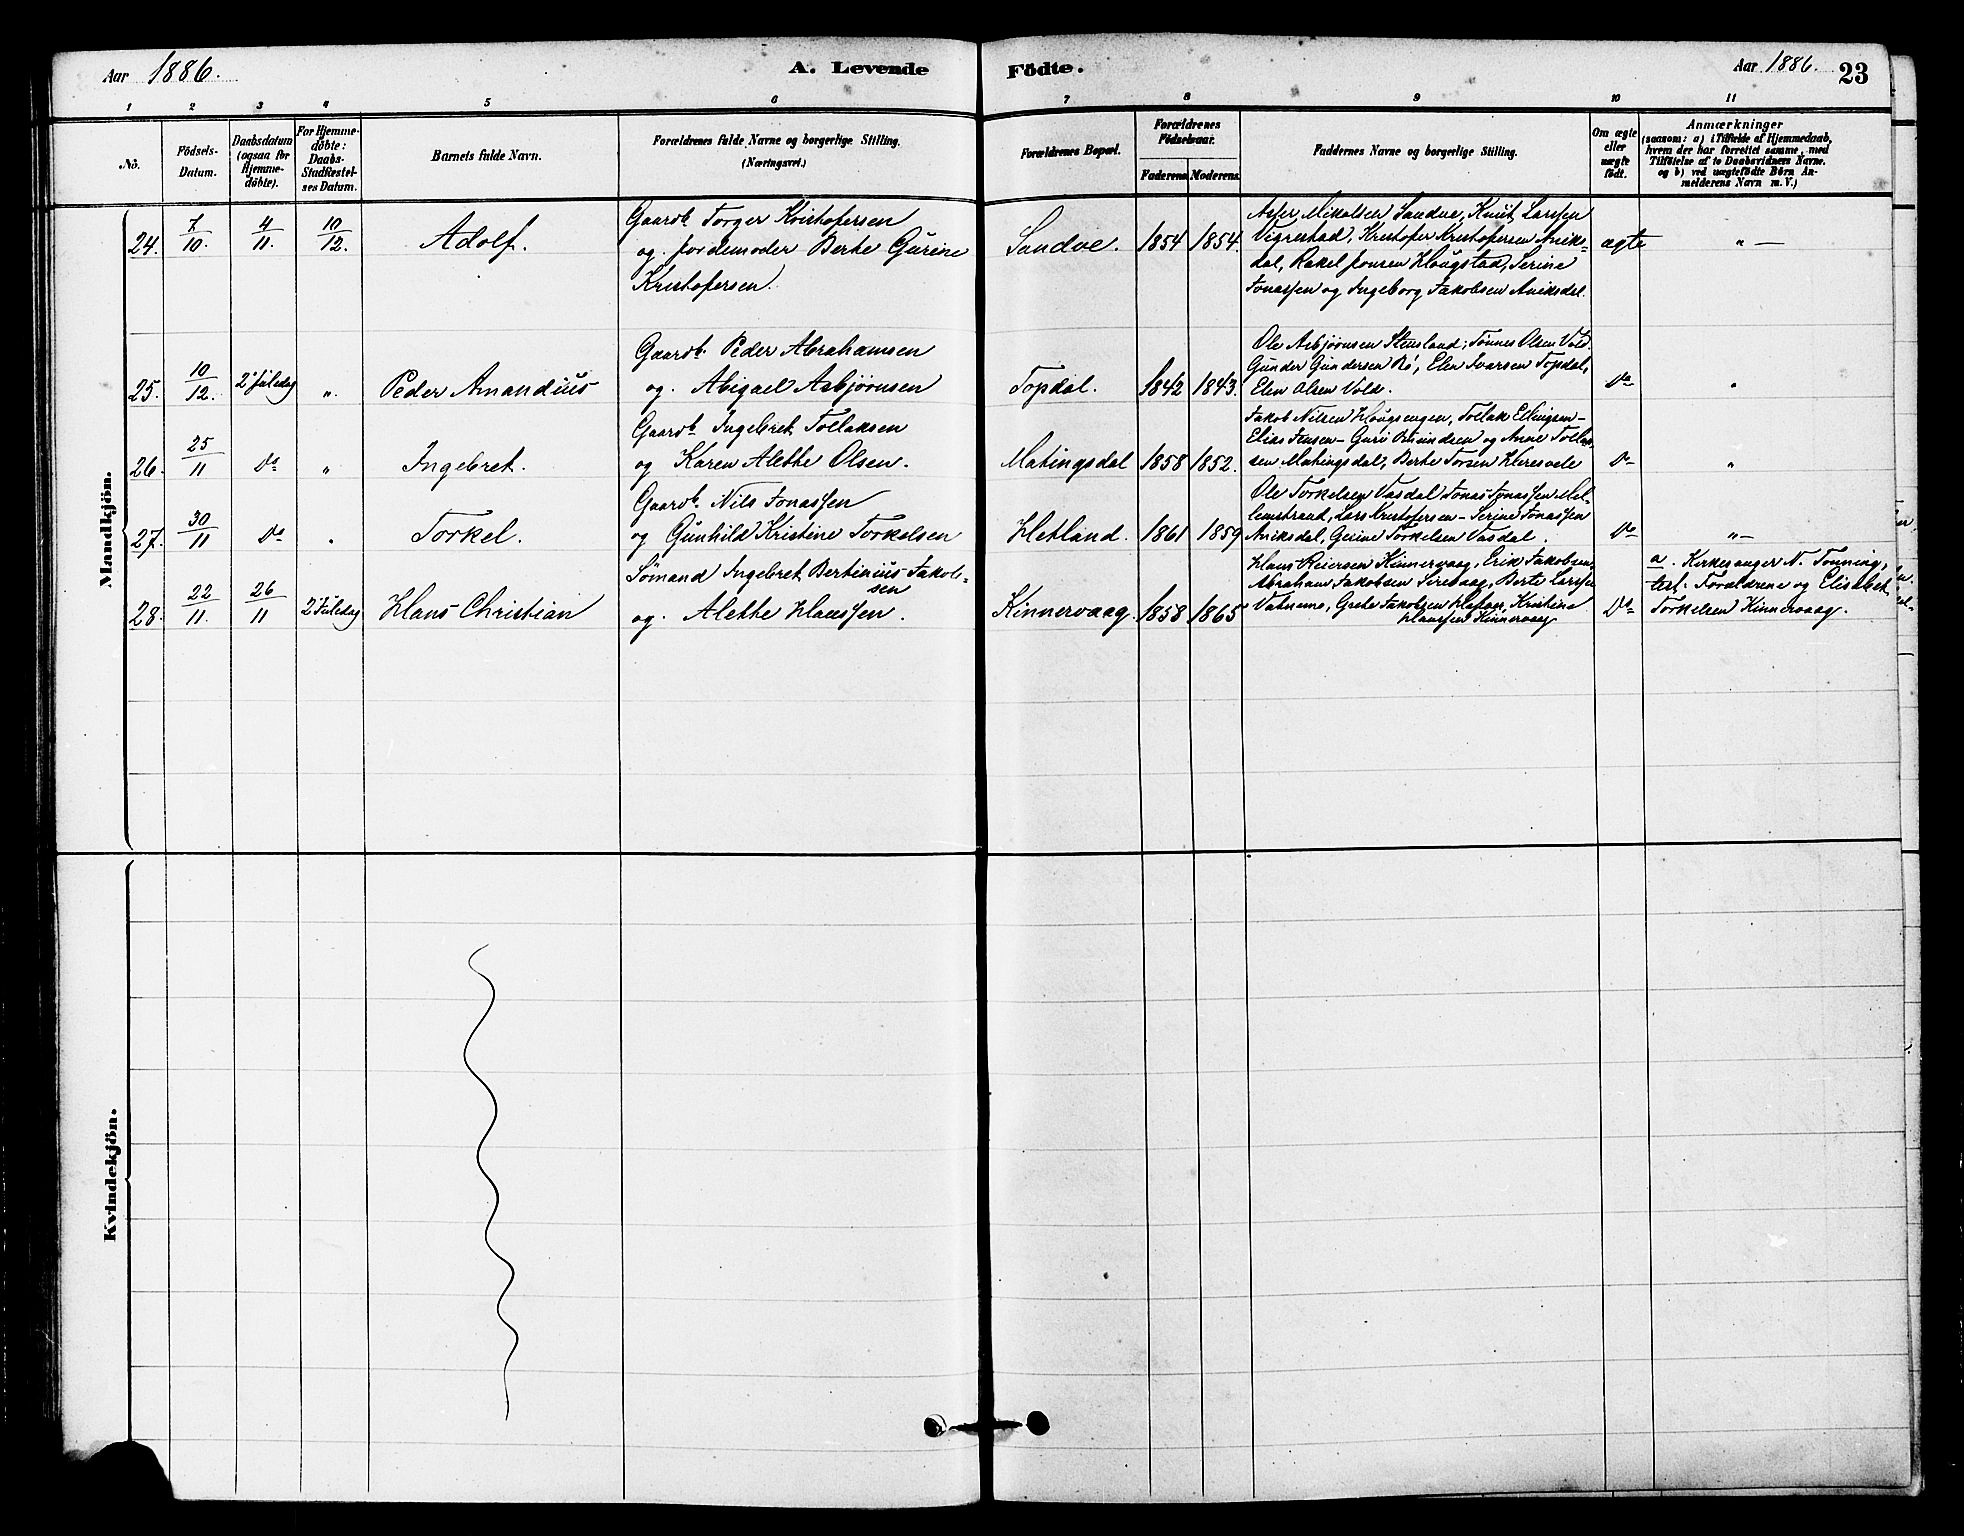 Aar 1886.
A. Levende Födte.
Aar 1886. 23
1 2 3 4 5 6 7 8 9 10 11
No. Födsels-Datum. Daabsdatum (ogsaa for Hjemme-döbte). For Hjemme-döbte: Daabs-Stadfæstel-ses Datum. Barnets fulde Navn. Forældrenes fulde Navne og borgerlige Stilling. (Næringsvei.) Forældrenes Bopæl. Forældrenes Födselsaar. Faderens. Moderens. Faddernes Navne og borgerlige Stilling. Om ægte eller uægte födt. Anmærkninger (saasom: a) i Tilfælde af Hjemmedaab, hvem der har forrettet samme, med Tilföielse af to Daabsvidners Navne. og b) ved uægtefödte Börn An-melderens Navn m. V.)
Mandkjön.
24. 7/10. 4/11. 10/12. Adolf. Gaardb. Torger Kristofersen
og Berte Gurine
Kristofersen.
Sandve. 1854 1854. Asser Mikalsen Sandve, Knut Larssen
Vigrestad, Kristofer Kristofersen Aniks-
dal, Rakel Jonsen Hougstad, Serine
Jonassen og Ingeborg Jakobsen Aniksdal.
ægte „ —
25. 10/12. 2 Juledag „ Peder Amandius Gaardb. Peder Abrahamsen
og Abigael Asbjørnsen
Topdal. 1842 1843. Ole Asbjørnsen Stensland, Tønnes Olsen Vold
Gunder Gundersen Bø, Elen Ivarsen Topdal,
Elen Olsen Vold.
Do „
26. 25/11 Do „ Ingebret. Gaardb. Ingebret Tollaksen
og Karen Alethe Olsen.
Matingsdal 1858 1852. Jakob Nilsen Hougsengen, Tollak Ellingsen –
Elias Jensen – Guri og Anne Tollak-
sen Matingsdal, Berte Torsen Heresvele
Do „
27. 30/11 Do „ Torkel. Gaardb. Nils Jonassen
og Gunhild Kristine Torkelsen
Hetland. 1861 1859 Ole Torkelsen Vasdal Jonas Jonassen Mel-
lemstrand, Lars Kristofersen – Serine Jonassen
Aniksdal, Gurine Torkelsen Vasdal.
Do „ —
28. 22/11. 26/11 2 Juledag Hans Christian Sømand Ingebret Bertinius Jakob-
sen
og Alethe Hanssen.
Kinnervaag. 1858 1865 Hans Reiersen Kinnervaag, Erik Jakobsen,
Abraham Jakobsen Sirevaag, Berte Larssen
Vatnemo, Grete Jakobsen Kristine
Hanssen Kinnervaag
Do a. Kirkesanger N. Tonning,
test: Forældrene og Elisabet
Torkelsen Kinnervaag.
Kvindekjön.